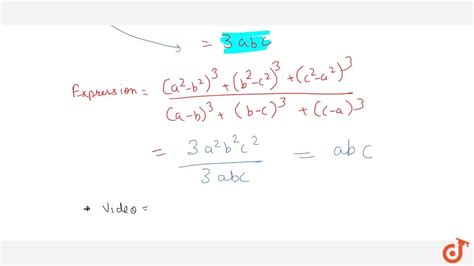 = 3abc
Expression = ((a²-b²)³ + (b²-c²)³ + (c²-a²)³) / ((a-b)³ + (b-c)³ + (c-a)³)
= 3a²b²c² / 3abc = abc
→ Video =